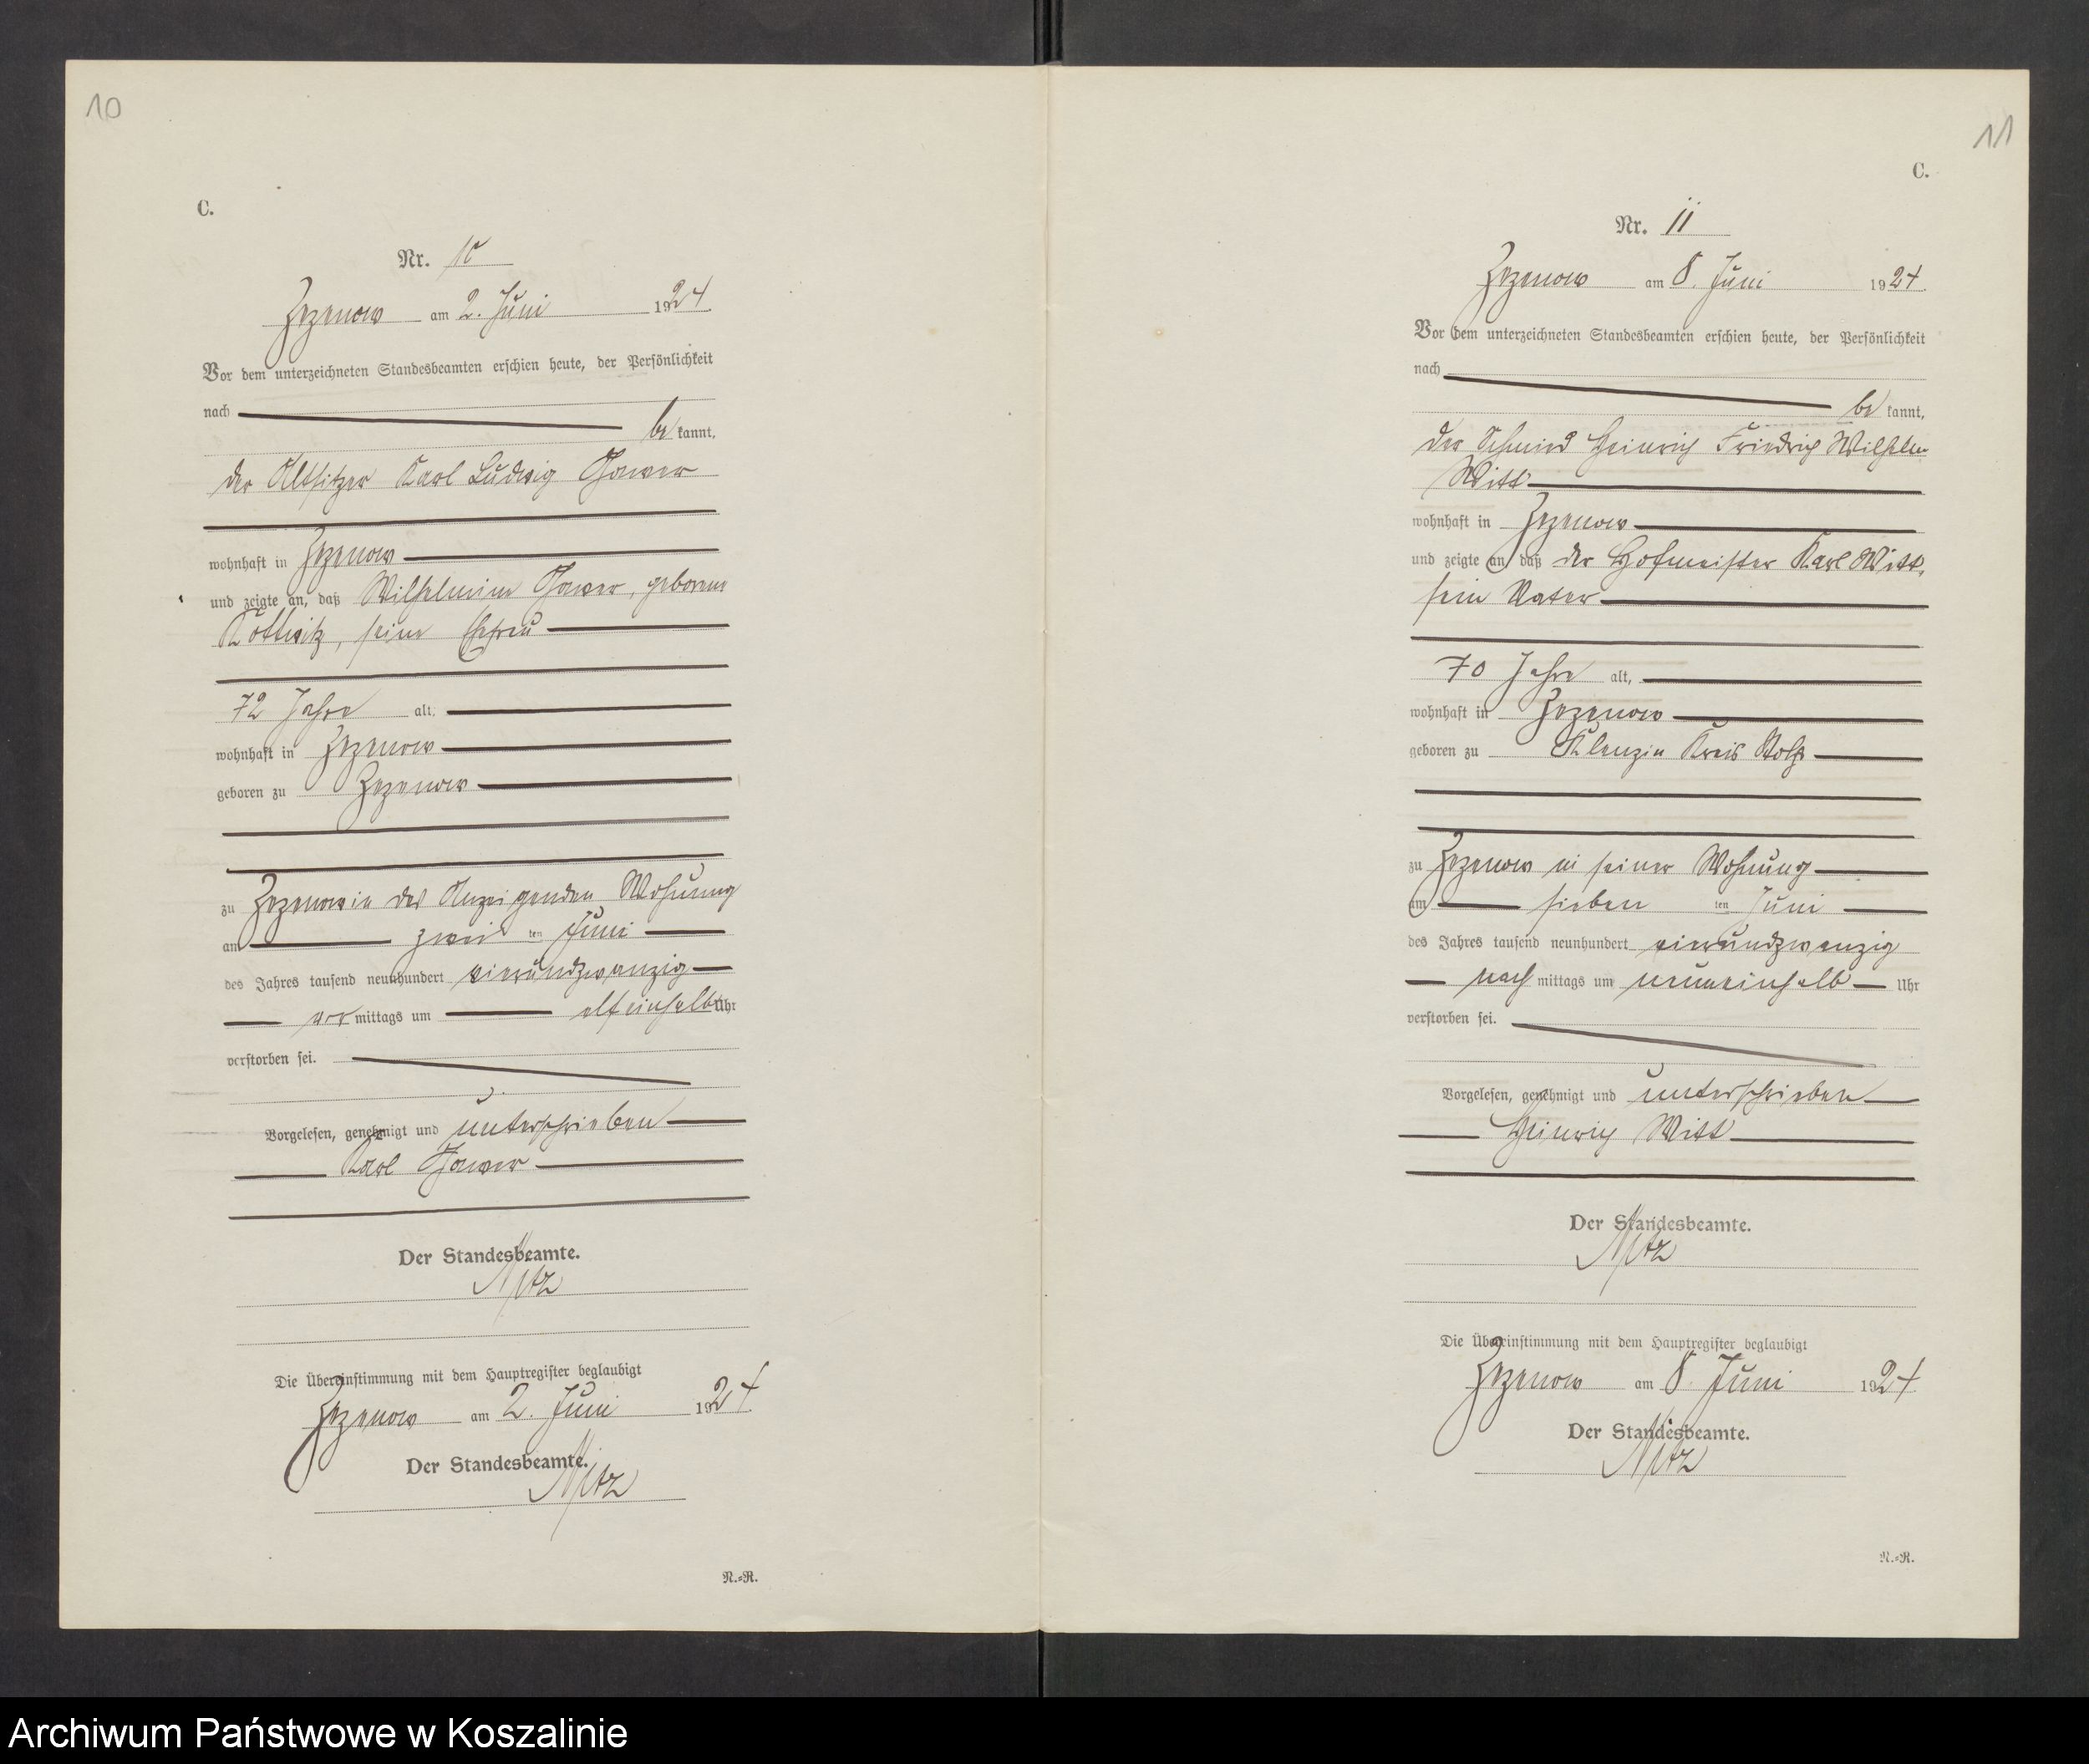 10
C.
Nr. 10
Zezenow am 2. Juni 1924
Vor dem unterzeichneten Standesbeamten erschien heute, der Persönlichkeit
nach
be kannt,
der Altsitzer Karl Ludwig
wohnhaft in Zezenow
und zeigte an, daß Wilhelmine geborene
Kottwitz, seine Ehefrau
72 Jahre alt,
wohnhaft in Zezenow
geboren zu Zezenow
zu Zezenow in des Anzeigenden Wohnung
am zwei ten Juni
des Jahres tausend neunhundert vierundzwanzig
vor mittags um elfeinhalb Uhr
verstorben sei.
Vorgelesen, genehmigt und unterschrieben
Karl
Der Standesbeamte.
Nitz
Die Übereinstimmung mit dem Hauptregister beglaubigt
Zezenow am 2. Juni 1924
Der Standesbeamte.
Nitz
N.=R.
11
C.
Nr. 11
Zezenow am 8. Juni 1924.
Vor dem unterzeichneten Standesbeamten erschien heute, der Persönlichkeit
nach
be kannt,
der Schmied Heinrich Friedrich Wilhelm
Witt
wohnhaft in Zezenow
und zeigte an, daß der Hofmeister Karl Witt,
sein Vater
70 Jahre alt,
wohnhaft in Zezenow
geboren zu Klenzin Kreis Stolp
zu Zezenow in seiner Wohnung
am sieben ten Juni
des Jahres tausend neunhundert vierundzwanzig
nach mittags um neuneinhalb Uhr
verstorben sei.
Vorgelesen, genehmigt und unterschrieben
Heinrich Witt
Der Standesbeamte.
Nitz
Die Übereinstimmung mit dem Hauptregister beglaubigt
Zezenow am 8. Juni 1924
Der Standesbeamte.
Nitz
N.=R.
Archiwum Państwowe w Koszalinie